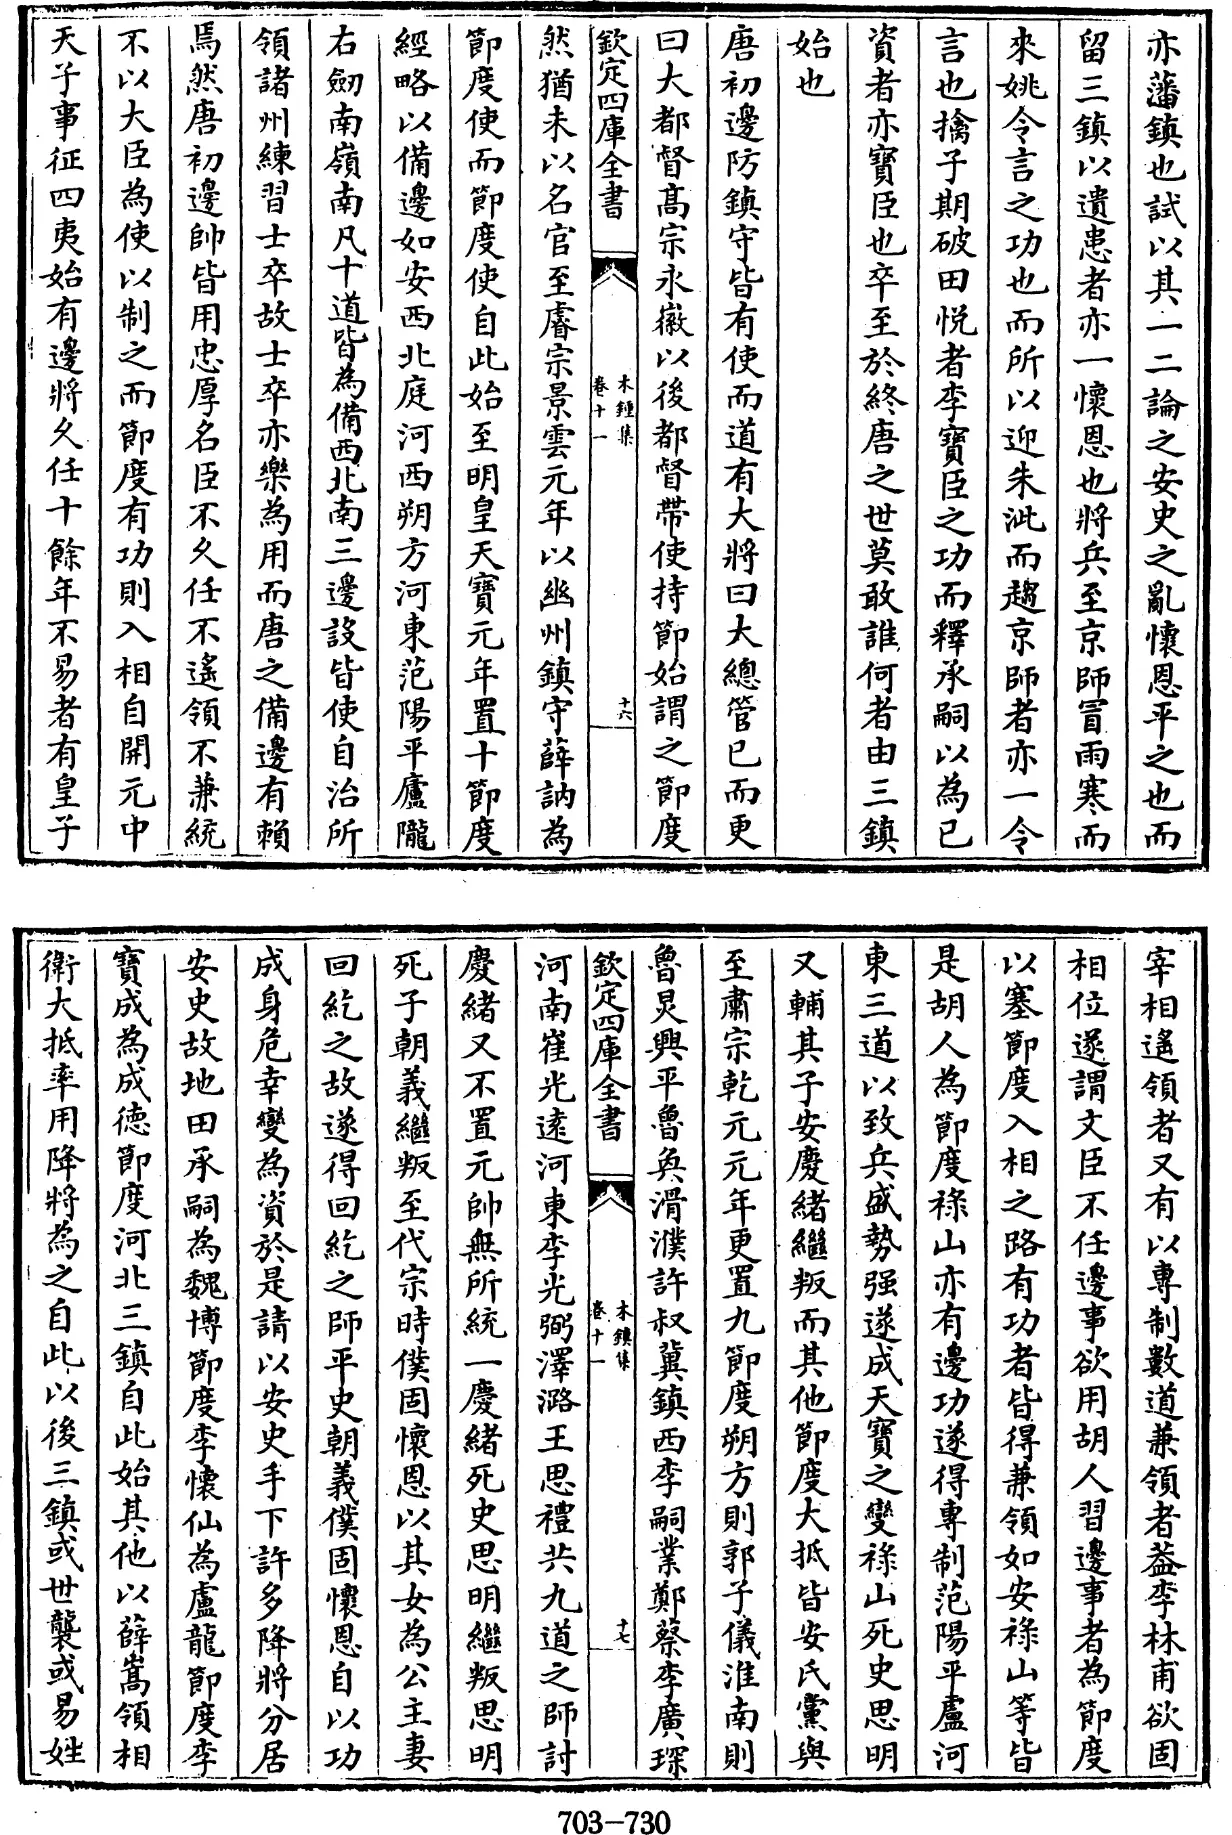 亦藩鎮也試以其一二論之安史之亂懷恩平之也而
留三鎮以遺患者亦一懷恩也將兵至京師冒雨寒而
來姚令言之功也而所以迎朱泚而趨京師者亦一令
言也擒子期破田悦者李寶臣之功而釋承嗣以為已
資者亦寶臣也卒至於終唐之世莫敢誰何者由三鎮
始也
唐初邊防鎮守皆有使而道有大將曰大總管已而更
曰大都督髙宗永徽以後都督帶使持節始謂之節度
欽定四庫全書
木鍾集
卷十一
十六
然猶未以名官至睿宗景雲元年以幽州鎮守薛訥為
節度使而節度使自此始至明皇天寶元年置十節度
經略以備邊如安西北庭河西朔方河東范陽平盧隴
右劒南嶺南凡十道皆為備西北南三邊設皆使自治所
領諸州練習士卒故士卒亦樂為用而唐之備邊有賴
焉然唐初邊帥皆用忠厚名臣不久任不遙領不兼統
不以大臣為使以制之而節度有功則入相自開元中
天子事征四夷始有邊將久任十餘年不易者有皇子
宰相遙領者又有以專制數道兼領者葢李林甫欲固
相位遂謂文臣不任邊事欲用胡人習邊事者為節度
以塞節度入相之路有功者皆得兼領如安祿山等皆
是胡人為節度祿山亦有邊功遂得專制范陽平盧河
東三道以致兵盛勢强遂成天寶之變祿山死史思明
又輔其子安慶緒繼叛而其他節度大抵皆安氏黨與
至肅宗乾元元年更置九節度朔方則郭子儀淮南則
魯炅興平魯奐滑濮許叔冀鎮西李嗣業鄭蔡李廣琛
欽定四庫全書
木鍾集
卷十一
十七
河南崔光逺河東李光弼澤潞王思禮共九道之師討
慶緒又不置元帥無所統一慶緒死史思明繼叛思明
死子朝義繼叛至代宗時僕固懷恩以其女為公主妻
回紇之故遂得回紇之師平史朝義僕固懷恩自以功
成身危幸變為資於是請以安史手下許多降將分居
安史故地田承嗣為魏博節度李懷仙為盧龍節度李
寶成為成德節度河北三鎮自此始其他以薛嵩領相
衛大抵率用降將為之自此以後三鎮或世襲或易姓
703-730